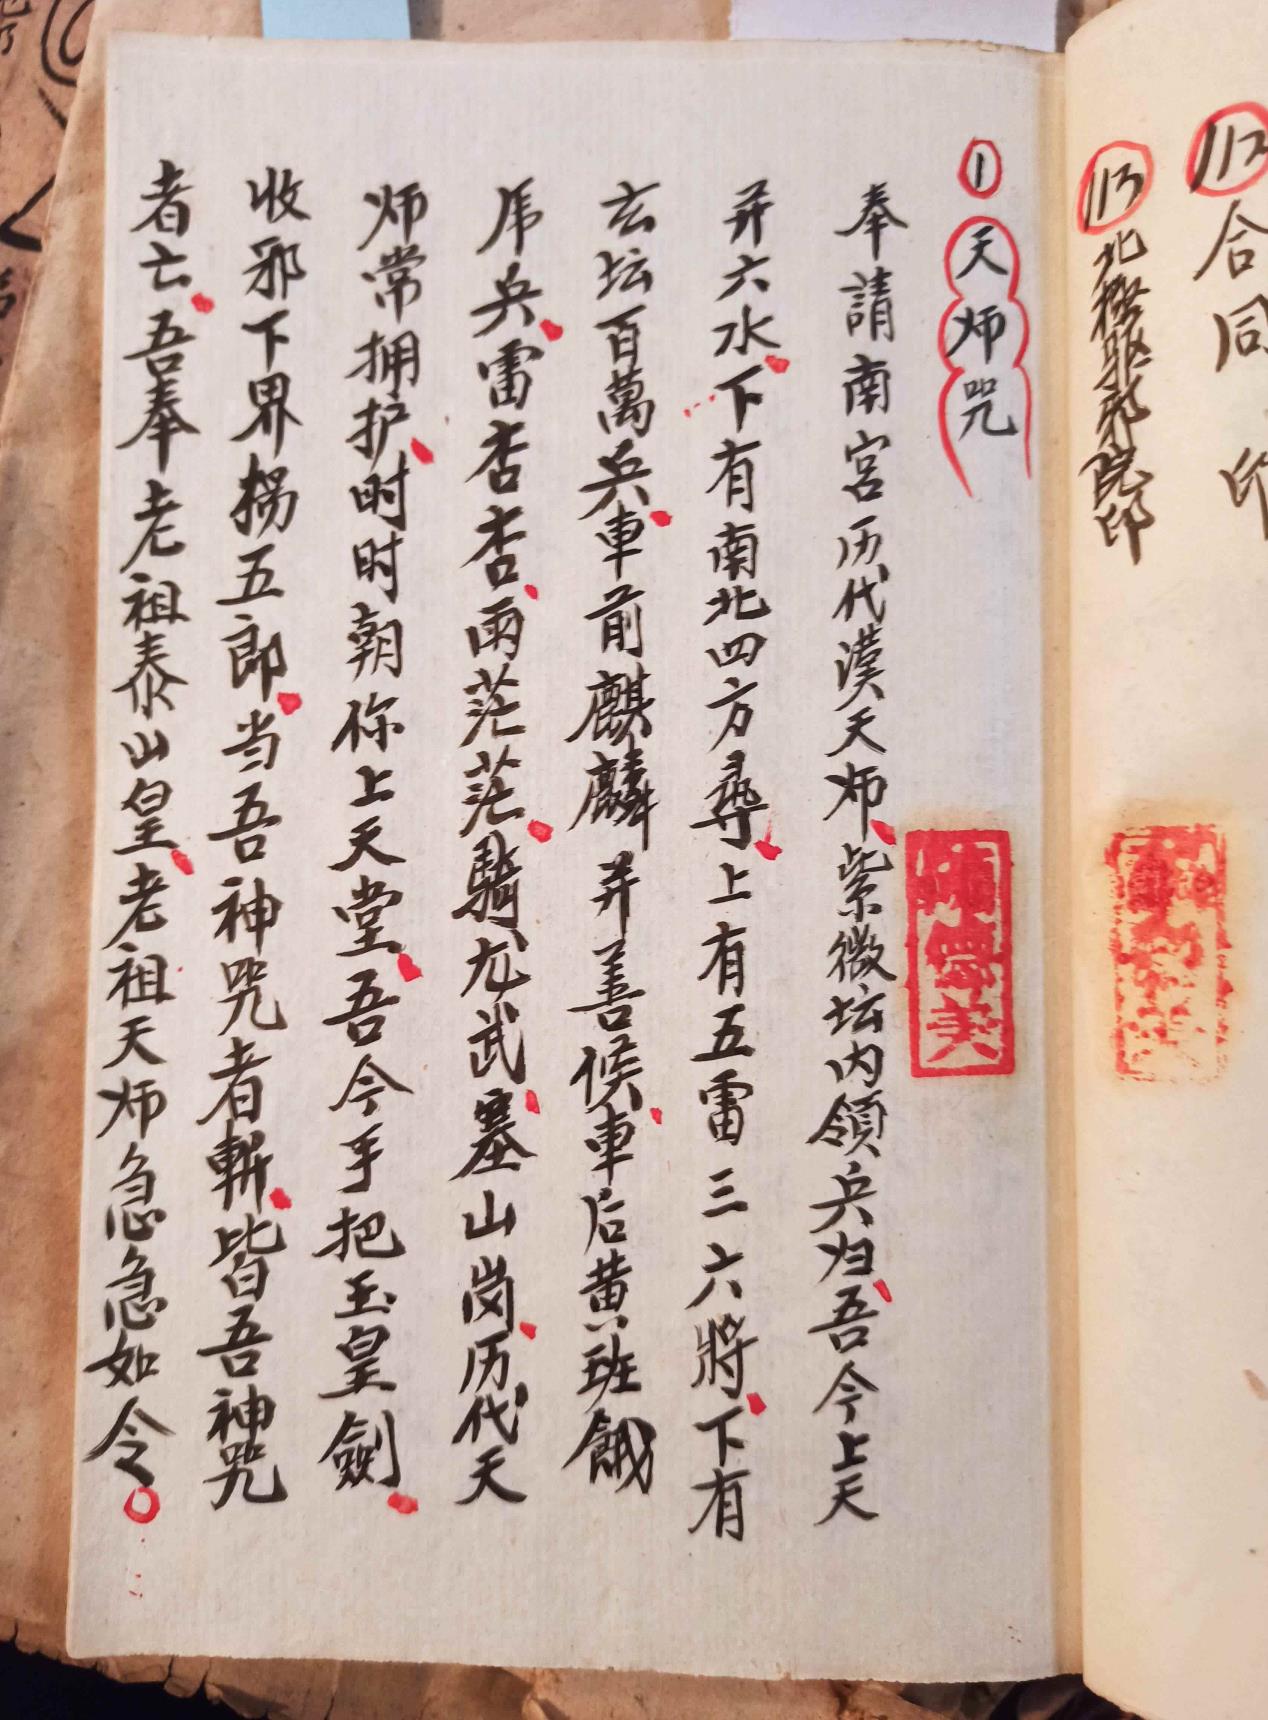 112 合同印
113 北極驱邪院印
1 天师咒
奉請南宮历代漢天师紫微坛内領兵归吾今上天
并六水下有南北四方尋上有五雷三六將下有
玄坛百萬兵車前麒麟并善候車后黄班餓
乕兵雷杳杳雨茫茫騎龙武塞山岗历代天
师常拥护时时朝你上天堂吾今手把玉皇劍
收邪下界拐五郎当吾神咒者斬皆吾神咒
者亡吾奉老祖泰山皇老祖天师急急如令